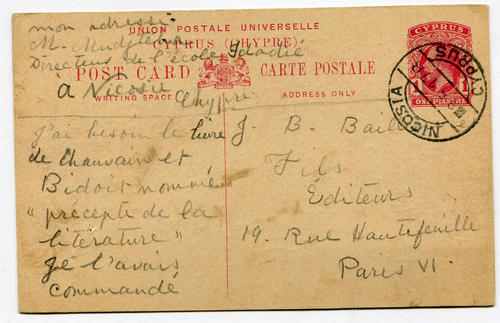 mon adresse
M.
Directeur de l'école Idadié
à Nicosie
Chypre
UNION POSTALE UNIVERSELLE
CYPRUS (CHYPRE)
POST CARD CARTE POSTALE
WRITING SPACE ADDRESS ONLY
CYPRUS
1 1
ONE PIASTRE
NICOSIA
CYPRUS
J'ai besoin le livre
de Chauvain et
Bidoit nommé
"précepte de la
literature"
je l'avais
commandé
J. B. Baill
Fils
Éditeurs
19. Rue Hautefeuille
Paris VI.